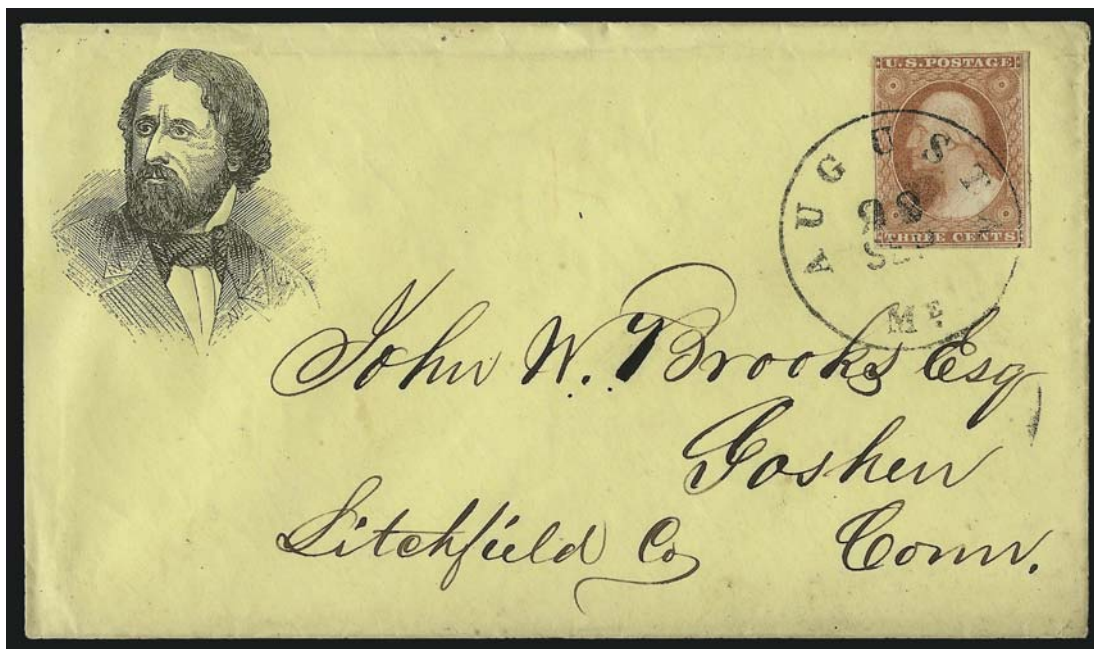 U.S. POSTAGE
THREE CENTS
AUGUSTA
SEP
ME.
John W. Brooks Esq
Goshen
Litchfield Co
Conn.